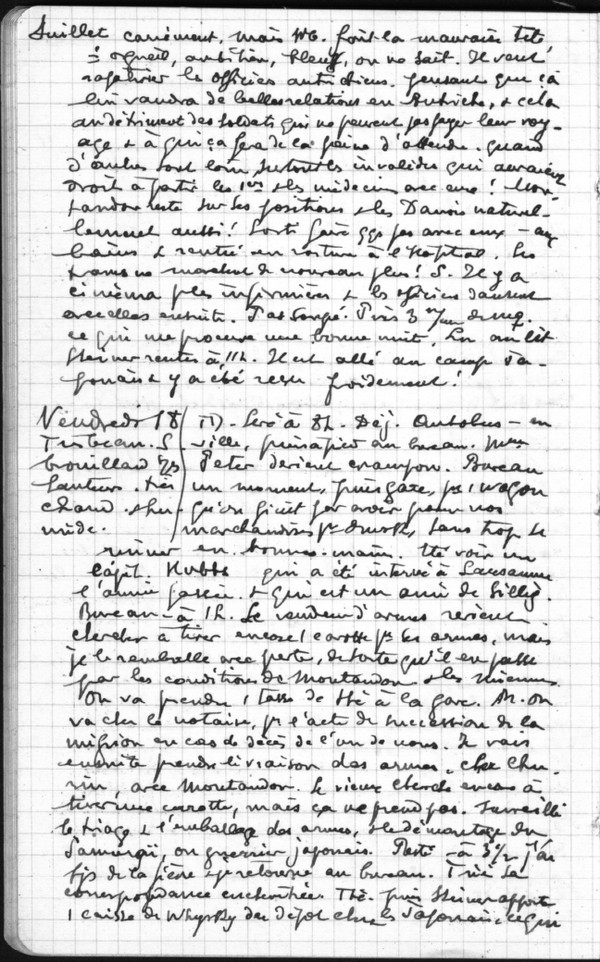 Juillet carrément, mais Wb. fait la mauvaise tête,
= orgueil, ambition, bluff, on ne sait. Il veut
rapatrier les officiers autrichiens. pensant que çà
lui vaudra de belles relations en Autriche, & cela
au détriment des soldats qui ne peuvent pas payer leur voy-
age & à qui ça fera de la peine d'attendre. quand
d'autres sont loin, surtout les invalides qui auraient
droit à partir les 1ers & les médecins avec eux! Mon-
tandon reste sur ses positions & les Danois naturel-
lement aussi! Sorti faire qqs pas avec eux — aux
bains & rentré en voiture à l'Hôpital. Les
trams ne marchent de nouveau plus! S. Il y a
cinéma pr les infirmières & les officiers dansent
avec elles ensuite. Pas soupé. Pris 3
ce qui me procure une bonne nuit. Lu au lit
Steiner rentre à 11h. Il est allé au camp ja-
ponais & y a été reçu froidement!
Vendredi 18 TD. Levé à 8h. Déj. Autobus — en
ville, puis à pied au bureau. Mme
brouillard Peter devient crampon. Bureau
un moment, puis gare, pr 1 wagon
chaud. & hu- qu'on finit par avoir pour nos
mide. marchandises pr Omsk, sans trop se
ruiner en bonnes-mains. Été voir un
capit. Hubbs qui a été interné à Lausanne
l'année passée & qui est un ami de Gilliéd.
Bureau — à 1h. Le vendeur d'armes revient
chercher à tirer encore 1 carotte pr ses armes, mais
je le remballe avec perte, de sorte qu'il en passe
par les conditions de Montandon & les miennes
On va prendre 1 tasse de thé à la gare. M. on
va chez le notaire, pr l'acte de succession de la
mission en cas de décès de l'un de nous. Je vais
ensuite prendre livraison des armes, chez Chu-
rin, avec Montandon. Le vieux cherche encore à
tirer une carotte, mais ça ne prend pas. Surveillé
le triage & l'emballage des armes, & le démontage du
Samuraï, ou guerrier japonais. Resté — à 3½ j'ai
fys de la fièvre & je retourne au bureau. Trié la
correspondance enchevêtrée. Thé. puis Steiner apporte
1 caisse de Whysky du dépôt chez les Japonais, ce qui